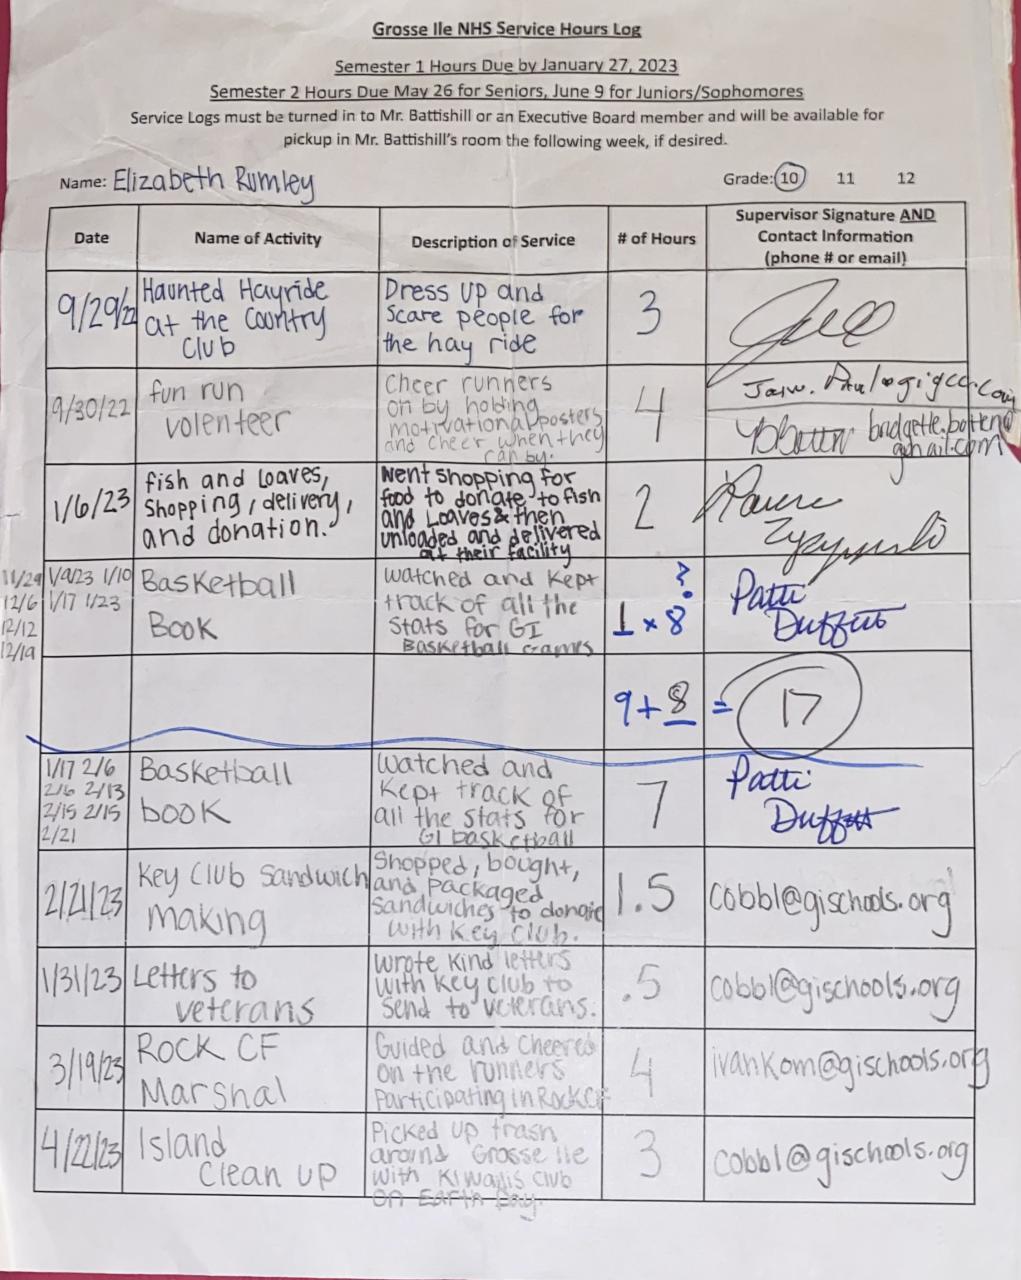 Grosse Ile NHS Service Hours Log
Semester 1 Hours Due by January 27, 2023
Semester 2 Hours Due May 26 for Seniors, June 9 for Juniors/Sophomores
Service Logs must be turned in to Mr. Battishill or an Executive Board member and will be available for
pickup in Mr. Battishill's room the following week, if desired.
Name: Elizabeth Rumley
Grade: 10 11 12
Date
Name of Activity
Description of Service
# of Hours
Supervisor Signature AND
Contact Information
(phone # or email)
9/29/22
Haunted Hayride
at the Country
Club
Dress up and
Scare people for
the hay ride
3
9/30/22
fun run
volenteer
Cheer runners
on by holding
motivational posters
and cheer when they
ran by.
4
bridgette.botten@
gmail.com
1/6/23
fish and Loaves,
Shopping, delivery,
and donation.
Went shopping for
food to donate to fish
and Loaves & then
unloaded and delivered
at their facility
2
11/29 1/9/23 1/10
12/6 1/17 1/23
12/12
12/19
Basketball
Book
watched and kept
track of all the
Stats for GI
Basketball Games
?
1 x 8
Patti
Duffett
9 + 8 = 17
1/17 2/6
2/6 2/13
2/15 2/15
2/21
Basketball
book
Watched and
kept track of
all the stats for
GI basketball
7
Patti
Duffett
2/21/23
Key Club Sandwich
Making
Shopped, bought,
and packaged
sandwiches to donate
with Key Club.
1.5
cobbl@gischools.org
1/31/23
Letters to
veterans
Wrote kind letters
with key club to
send to veterans.
.5
cobbl@gischools.org
3/19/23
ROCK CF
Marshal
Guided and cheered
on the runners
Participating in Rock CF
4
ivankom@gischools.org
4/22/23
Island
Clean up
Picked up trash
around Grosse Ile
with Kiwanis Club
on Earth Day.
3
cobbl@gischools.org